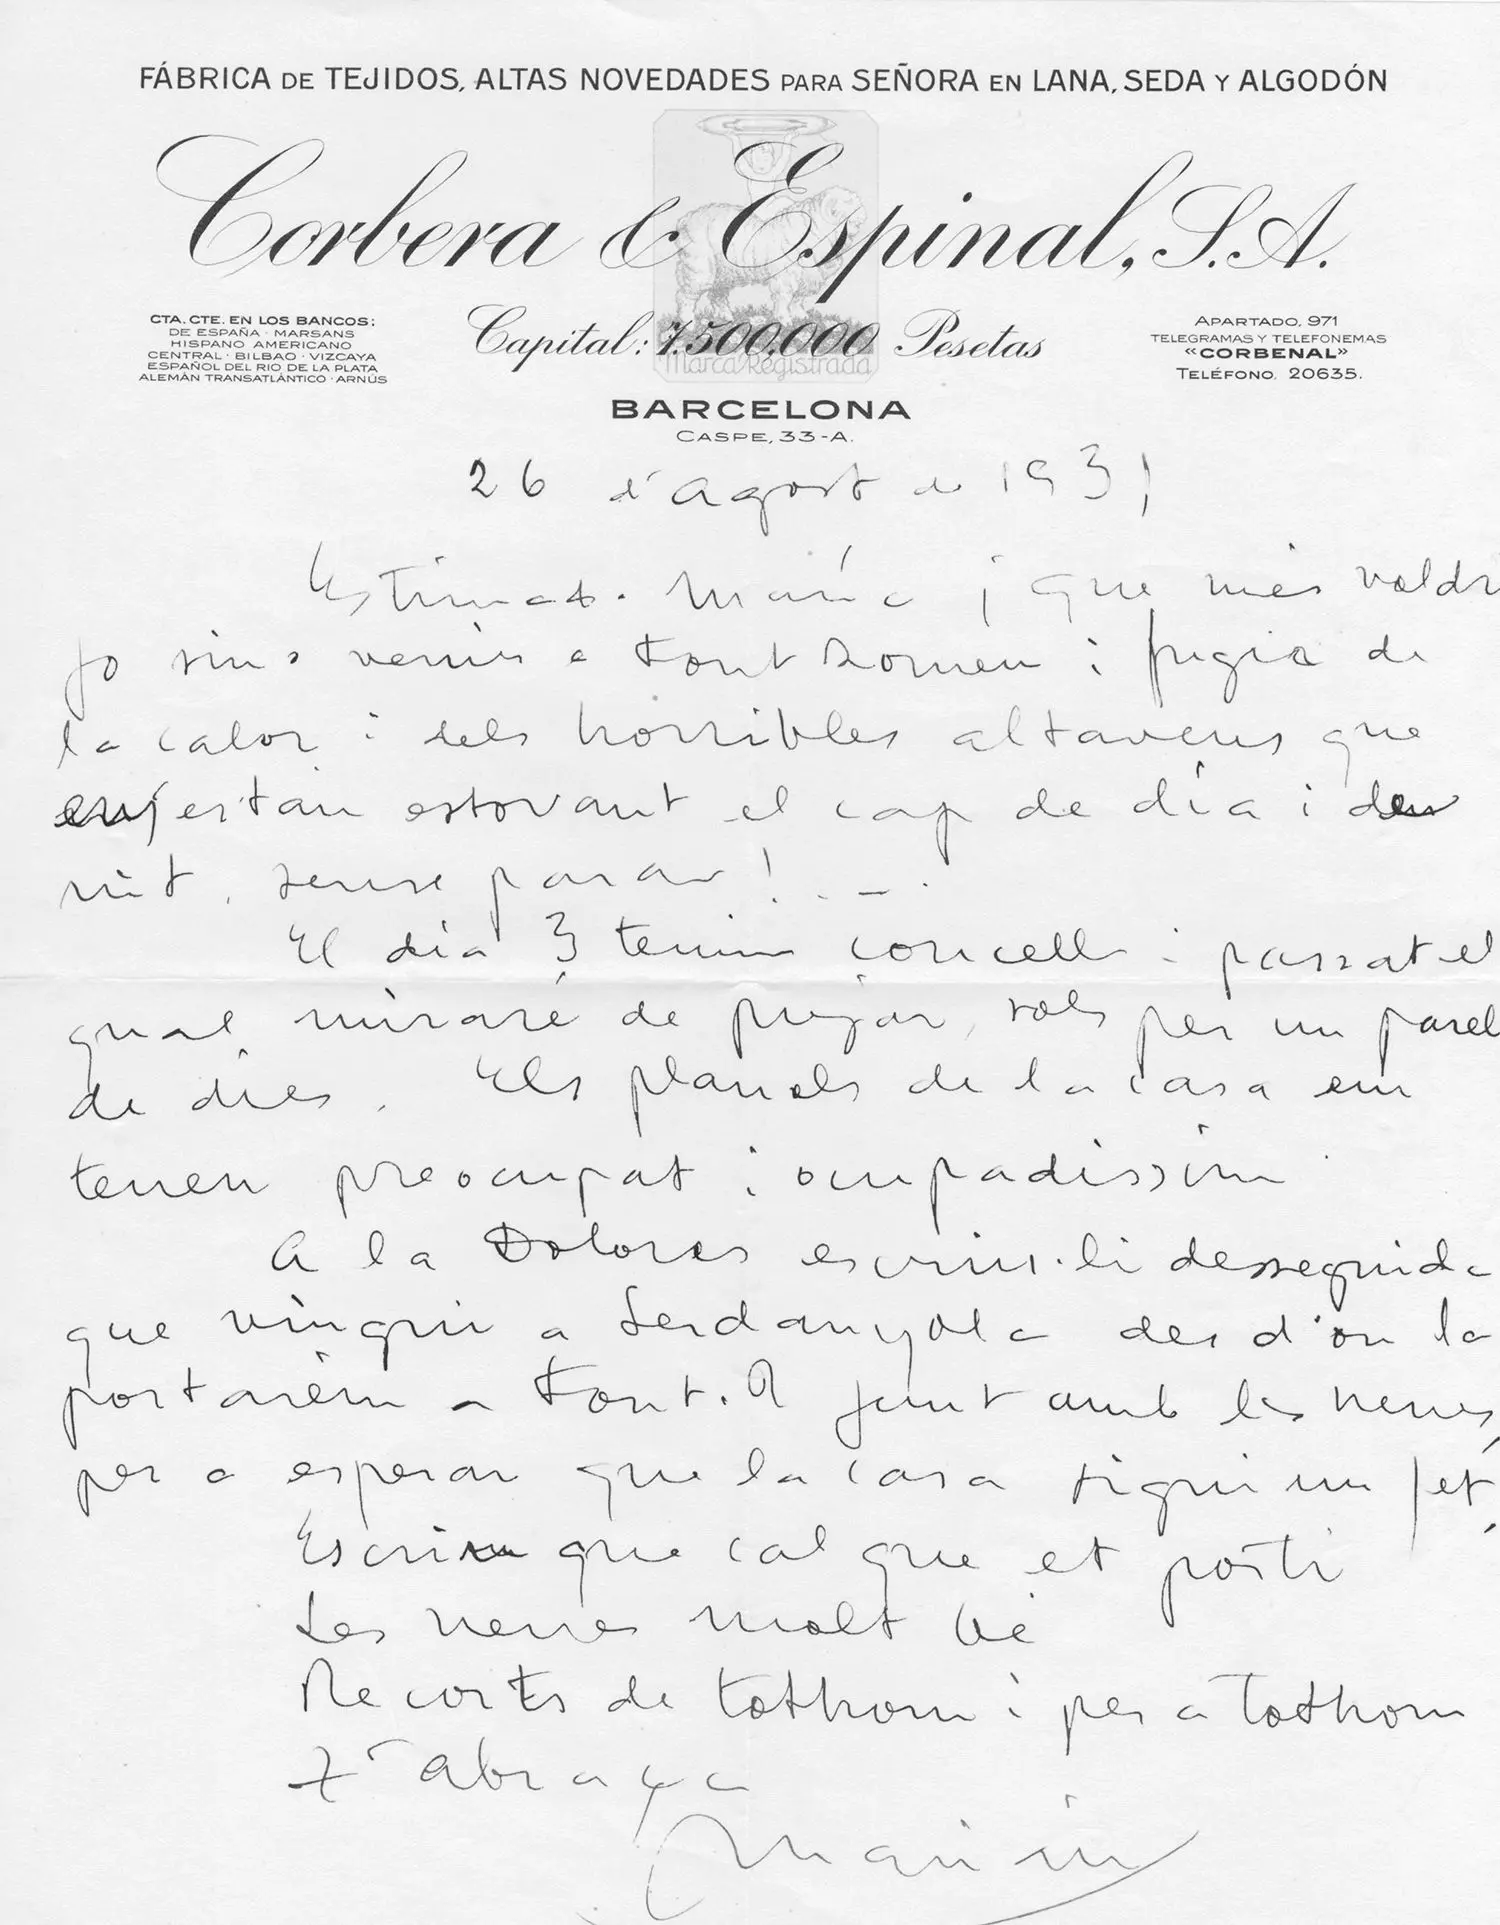 FÁBRICA DE TEJIDOS, ALTAS NOVEDADES PARA SEÑORA EN LANA, SEDA Y ALGODÓN
Corbera & Espinal, S.A.
CTA. CTE. EN LOS BANCOS:
DE ESPAÑA · MARSANS
HISPANO AMERICANO
CENTRAL · BILBAO · VIZCAYA
ESPAÑOL DEL RIO DE LA PLATA
ALEMÁN TRANSATLÁNTICO · ARNÚS
Capital: 7.500,000 Pesetas
Marca Registrada
APARTADO, 971
TELEGRAMAS Y TELEFONEMAS
«CORBENAL»
TELÉFONO. 20635.
BARCELONA
CASPE, 33-A.
26 d'agost de 1931
Estimada María ¡que més valdr
jo sino venir a Font Romeu i fugir de
la calor i dels horribles altaveus que
ens estan estovant el cap de día i de
nit, sense parar!
El día 3 tenim concell i passat el
qual miraré de pujar, sols per un parell
de dies. Els planols de la casa em
tenen preocupat i ocupadíssim
A la Dolores escriu-li desseguida
que vingui a Serdanyola des d'on la
portarém a Font. R junt amb les nenes,
per a esperar que la casa sigui un fet,
Escriu que cal que et porti
Les nenes molt bé
Recorts de tothom i per a tothom
T'abraça